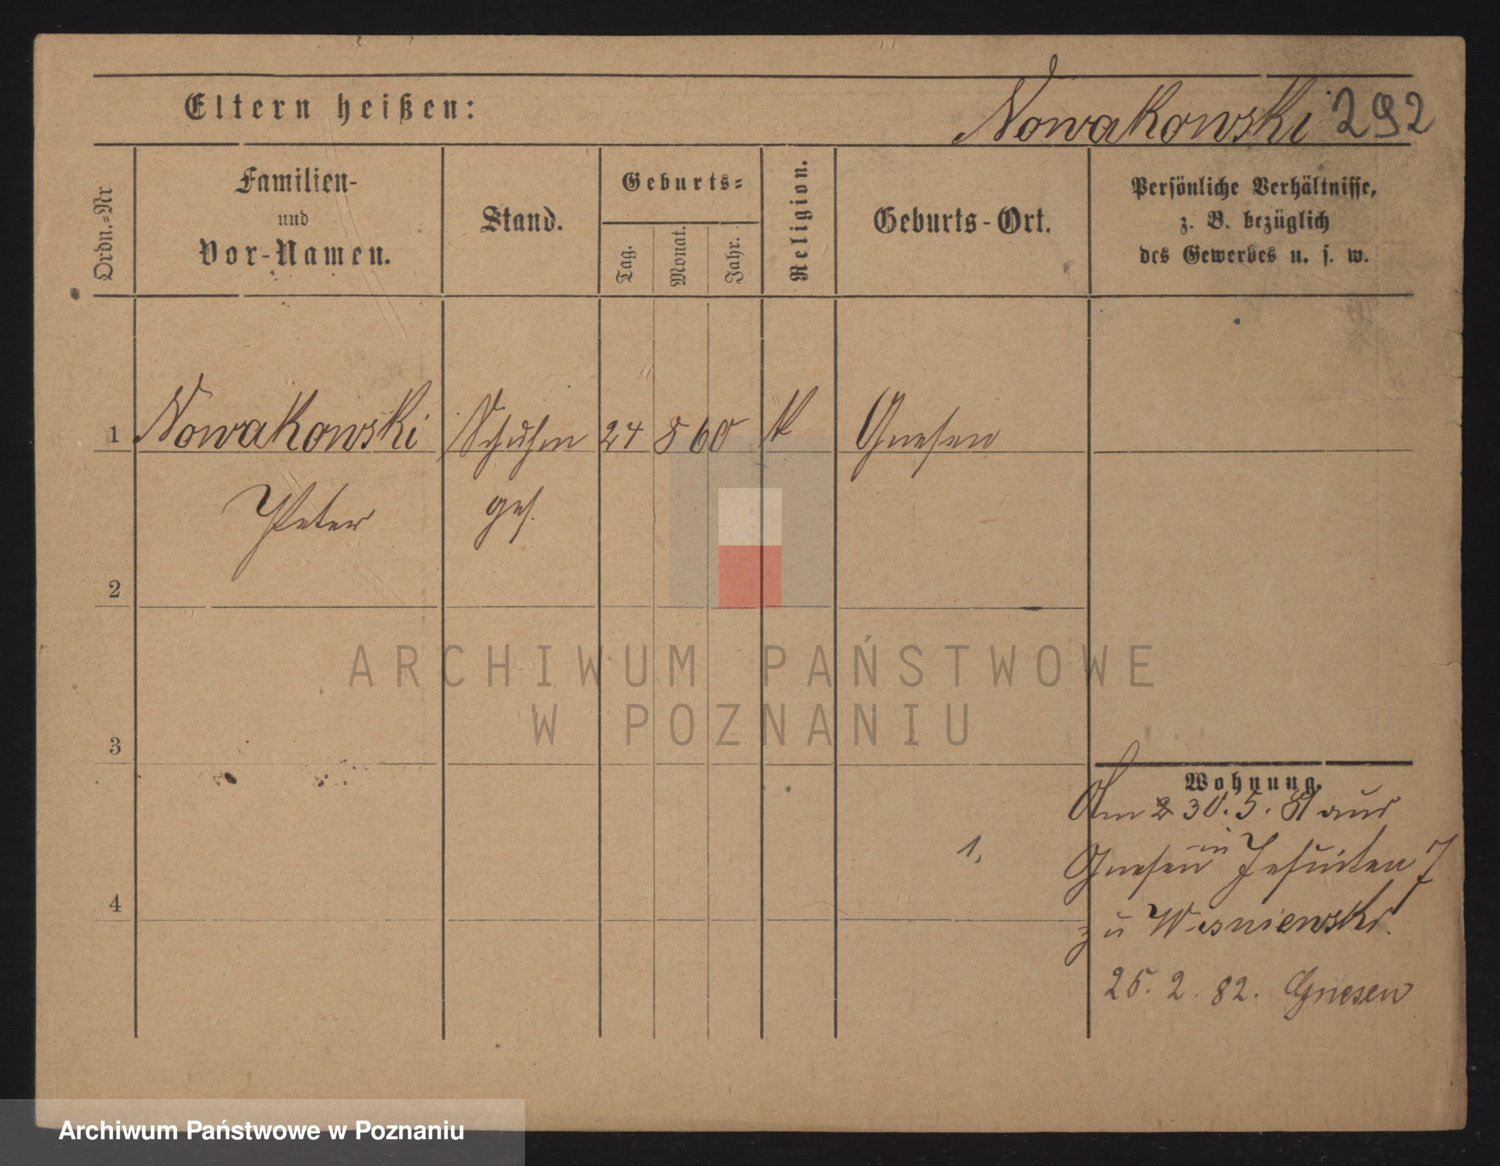 Eltern heißen:
Nowakowski 292
Ordn.-Nr
Familien-
und
Vor-Namen.
Stand.
Geburts-
Tag.
Monat.
Jahr.
Religion.
Geburts-Ort.
Persönliche Verhältnisse,
z. B. bezüglich
des Gewerbes u. s. w.
1 Nowakowski Schuhm 24 8 60 k Gnesen
Peter ges.
2
ARCHIWUM PAŃSTWOWE
W POZNANIU
3
Wohnung.
Am 30. 5. 81 aus
1, Gnesen in Jesuiten 7
4
zu Wisniewski.
25. 2. 82. Gnesen
Archiwum Państwowe w Poznaniu